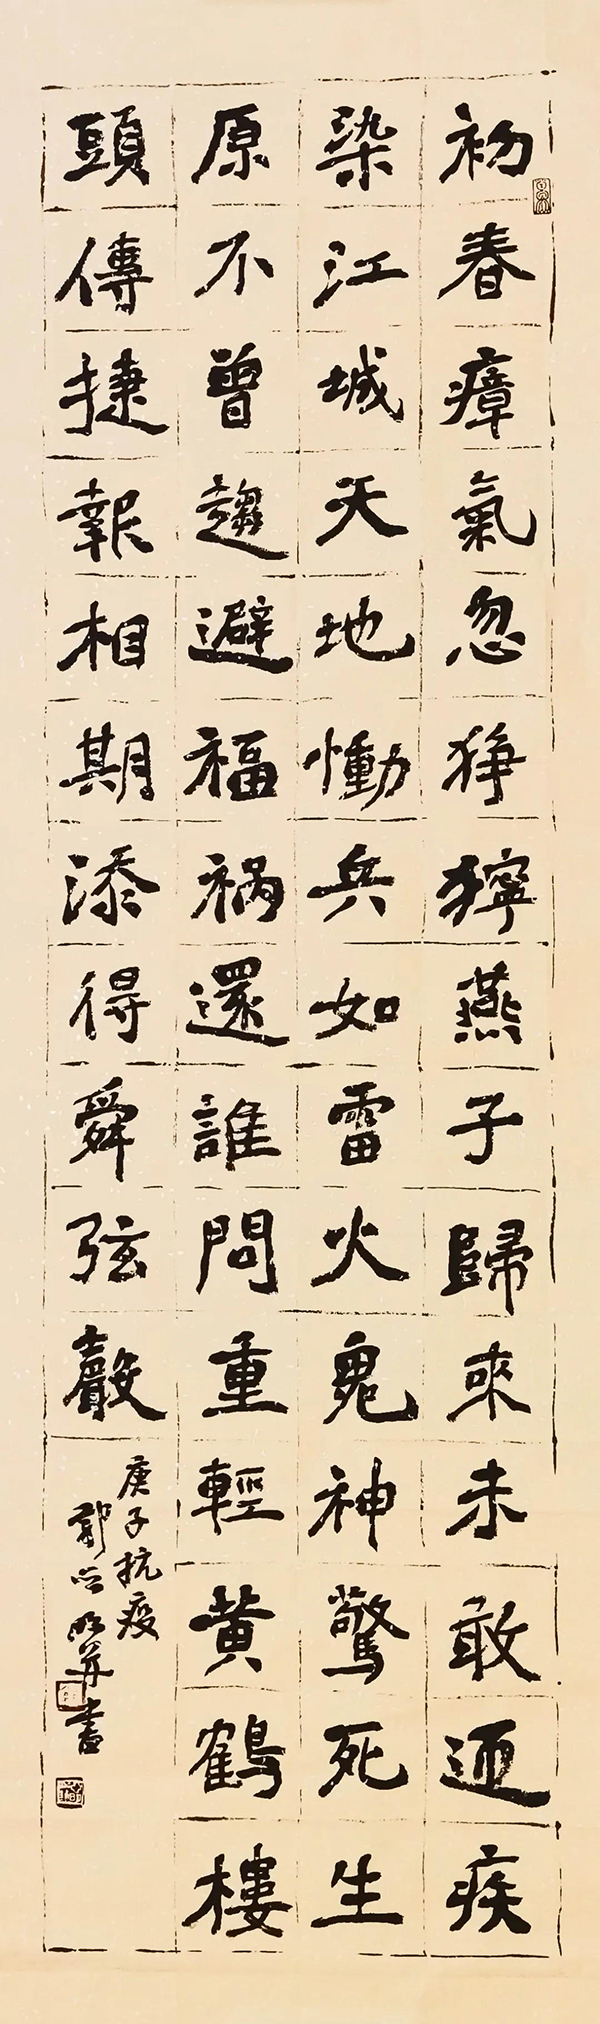 初春瘴氣忽猙獰燕子歸來未敢迎疾
染江城天地慟兵如雷火鬼神驚死生
原不曾趨避福禍還誰問重輕黄鶴樓
頭傳捷報相期添得舜弦聲
庚子抗疫
郭并書